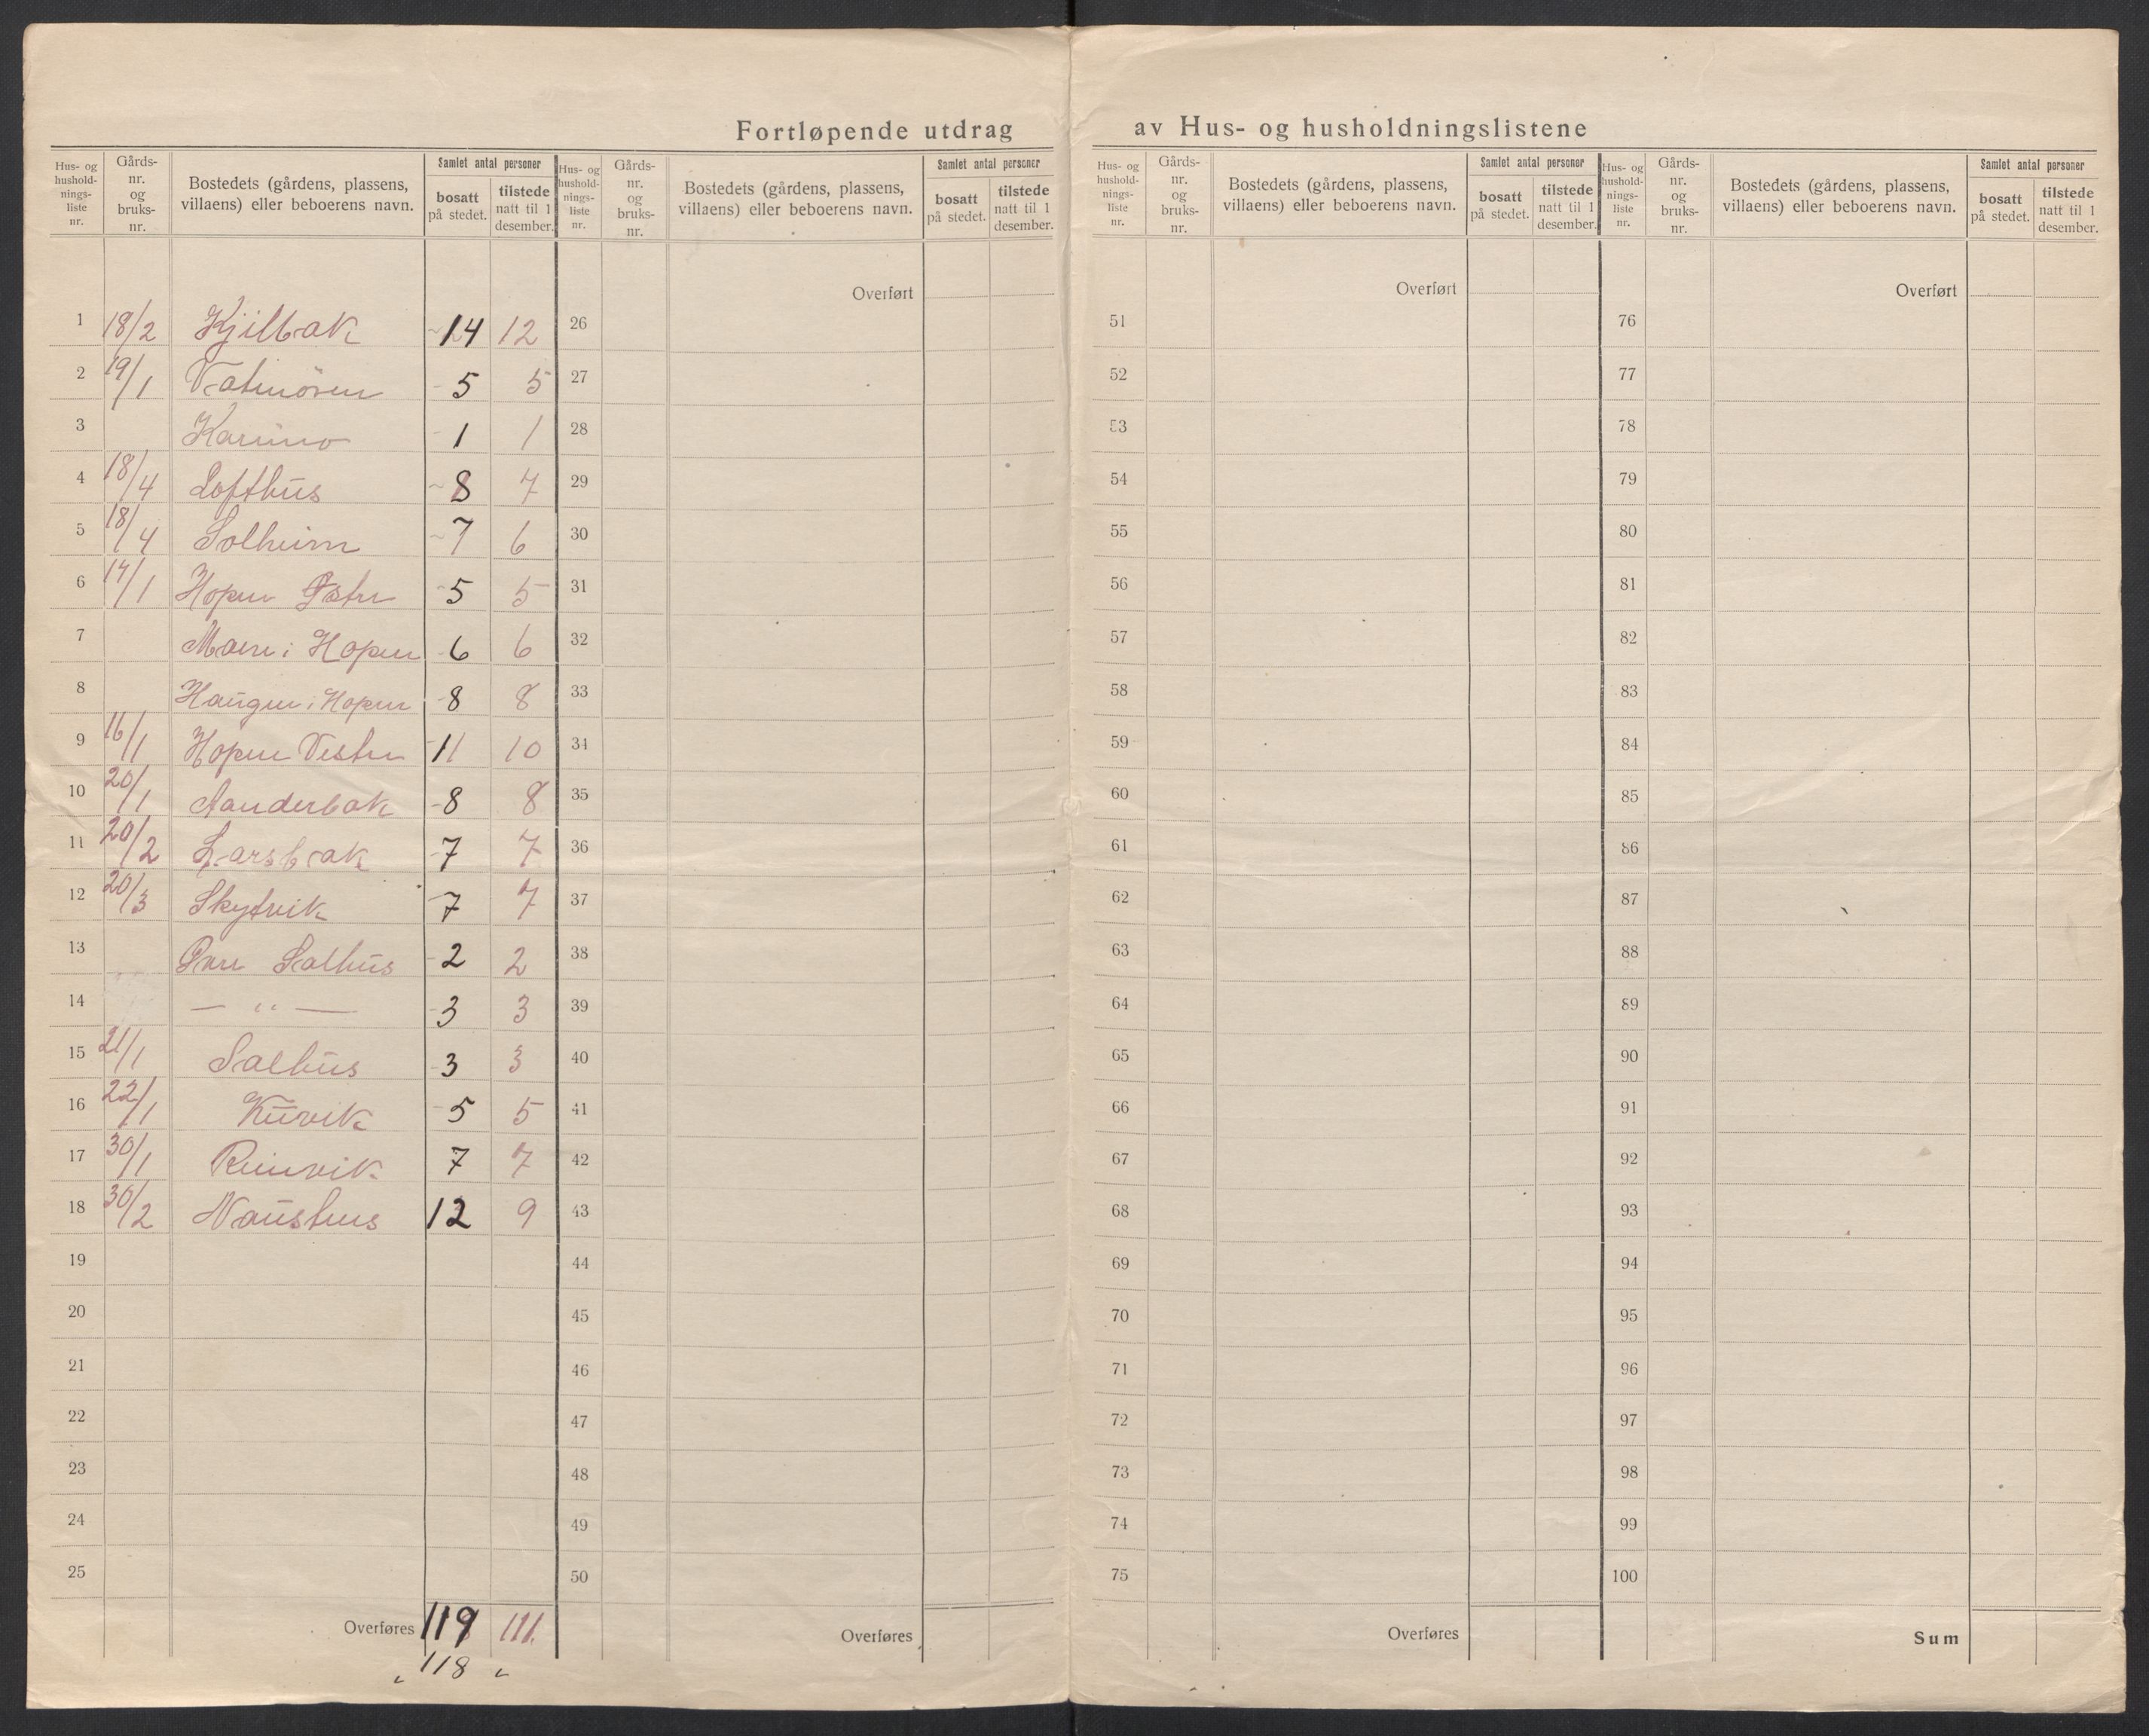 Fortløpende utdrag av Hus- og husholdningslistene
Hus- og hushold-nings-liste nr. Gårds-nr. og bruks-nr. Bostedets (gårdens, plassens, villaens) eller beboerens navn. Samlet antal personer bosatt på stedet. tilstede natt til 1 desember.
Hus- og hushold-nings-liste nr. Gårds-nr. og bruks-nr. Bostedets (gårdens, plassens, villaens) eller beboerens navn. Samlet antal personer bosatt på stedet. tilstede natt til 1 desember.
1 18/2 Kjilbak 14 12
2 19/1 Vatnören 5 5
3 1 1
4 18/4 Lofthūs 8 7
5 18/4 Solheim 7 6
6 17/1 Hopen Østre 5 5
7 Moen i Hopen 6 6
8 Haūgen i Hopen 8 8
9 16/1 Hopen Vestre 11 10
10 20/1 Aanderbak 8 8
11 20/2 Larsbak 7 7
12 20/3 Skytvik 7 7
13 Øvre Salhūs 2 2
14 — " — 3 3
15 21/1 Salhūs 3 3
16 22/1 Kūvik 5 5
17 30/1 Reinvik 7 7
18 30/2 Naūsthus 12 9
19
20
21
22
23
24
25
Overføres 119 111.
118
Overført
26
27
28
29
30
31
32
33
34
35
36
37
38
39
40
41
42
43
44
45
46
47
48
49
50
Overføres
Hus- og hushold-nings-liste nr. Gårds-nr. og bruks-nr. Bostedets (gårdens, plassens, villaens) eller beboerens navn. Samlet antal personer bosatt på stedet. tilstede natt til 1 desember.
Overført
51
52
53
54
55
56
57
58
59
60
61
62
63
64
65
66
67
68
69
70
71
72
73
74
75
Overføres
Hus- og hushold-nings-liste nr. Gårds-nr. og bruks-nr. Bostedets (gårdens, plassens, villaens) eller beboerens navn. Samlet antal personer bosatt på stedet. tilstede natt til 1 desember.
Overført
76
77
78
79
80
81
82
83
84
85
86
87
88
89
90
91
92
93
94
95
96
97
98
99
100
Sum